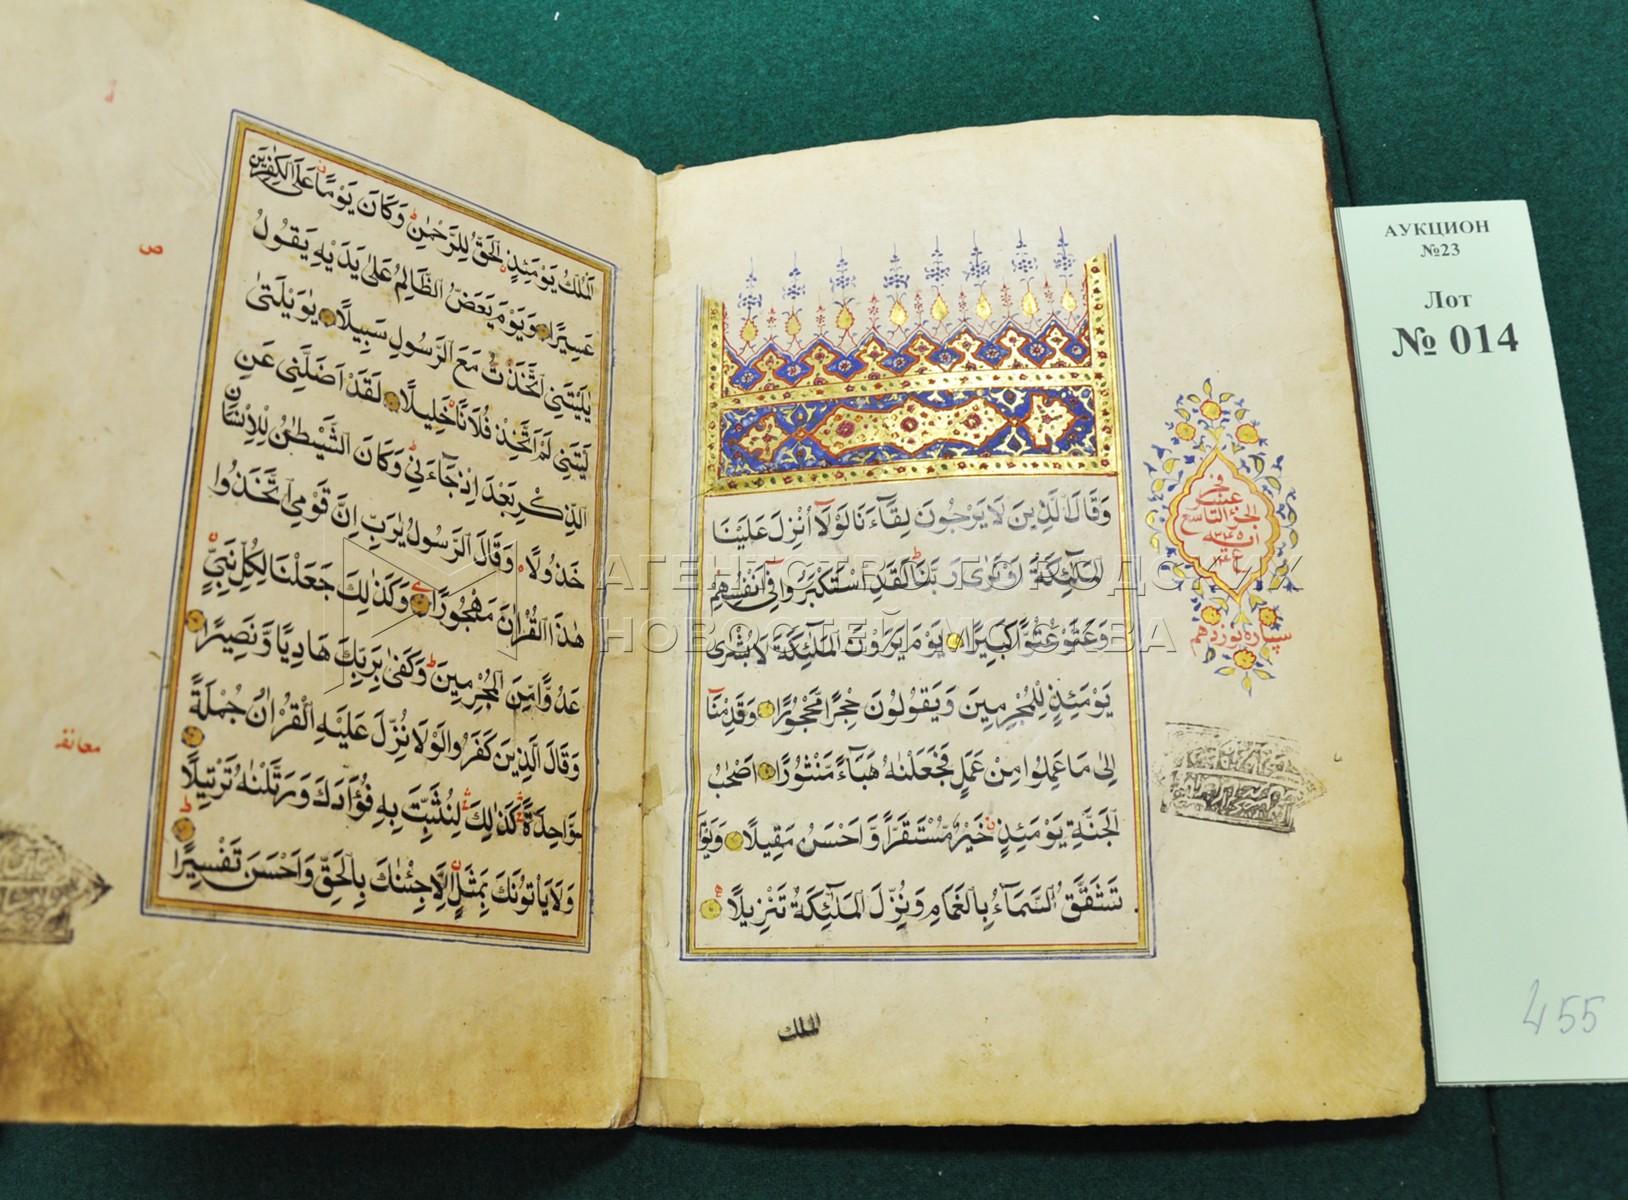 وَقَالَ الَّذِينَ لَا يَرْجُونَ لِقَآءَنَا لَوْلَآ اُنْزِلَ عَلَيْنَا
الْمَلٰٓئِكَةُ اَوْ نَرٰى رَبَّنَا لَقَدِ اسْتَكْبَرُوا فِٓى اَنْفُسِهِمْ
وَعَتَوْ عُتُوًّا كَبِيرًا يَوْمَ يَرَوْنَ الْمَلٰٓئِكَةَ لَا بُشْرٰى
يَوْمَئِذٍ لِلْمُجْرِمِينَ وَيَقُولُونَ حِجْرًا مَّحْجُورًا وَقَدِمْنَآ
اِلٰى مَا عَمِلُوا مِنْ عَمَلٍ فَجَعَلْنٰهُ هَبَآءً مَّنْثُورًا اَصْحٰبُ
الْجَنَّةِ يَوْمَئِذٍ خَيْرٌ مُّسْتَقَرًّا وَّاَحْسَنُ مَقِيلًا وَيَوْمَ
تَشَقَّقُ السَّمَآءُ بِالْغَمَامِ وَنُزِّلَ الْمَلٰٓئِكَةُ تَنْزِيلًا
الملك
الجزء التاسع
عشر
سپاره نوزدهم
اَلْمُلْكُ يَوْمَئِذٍ الْحَقُّ لِلرَّحْمٰنِ وَكَانَ يَوْمًا عَلَى الْكٰفِرِينَ
عَسِيرًا وَيَوْمَ يَعَضُّ الظَّالِمُ عَلٰى يَدَيْهِ يَقُولُ
يٰلَيْتَنِى اتَّخَذْتُ مَعَ الرَّسُولِ سَبِيلًا يٰوَيْلَتٰى
لَيْتَنِى لَمْ اَتَّخِذْ فُلَانًا خَلِيلًا لَقَدْ اَضَلَّنِى عَنِ
الذِّكْرِ بَعْدَ اِذْ جَآءَنِى وَكَانَ الشَّيْطٰنُ لِلْاِنْسَانِ
خَذُولًا وَقَالَ الرَّسُولُ يٰرَبِّ اِنَّ قَوْمِى اتَّخَذُوا
هٰذَا الْقُرْاٰنَ مَهْجُورًا وَكَذٰلِكَ جَعَلْنَا لِكُلِّ نَبِىٍّ
عَدُوًّا مِّنَ الْمُجْرِمِينَ وَكَفٰى بِرَبِّكَ هَادِيًا وَّنَصِيرًا
وَقَالَ الَّذِينَ كَفَرُوا لَوْلَا نُزِّلَ عَلَيْهِ الْقُرْاٰنُ جُمْلَةً
وَّاحِدَةً كَذٰلِكَ لِنُثَبِّتَ بِهِ فُؤَادَكَ وَرَتَّلْنٰهُ تَرْتِيلًا
وَلَا يَاْتُونَكَ بِمَثَلٍ اِلَّا جِئْنٰكَ بِالْحَقِّ وَاَحْسَنَ تَفْسِيرًا
معانقه
АУКЦИОН
№23
Лот
№ 014
455
АГЕНТСТВО ГОРОДСКИХ
НОВОСТЕЙ МОСКВА